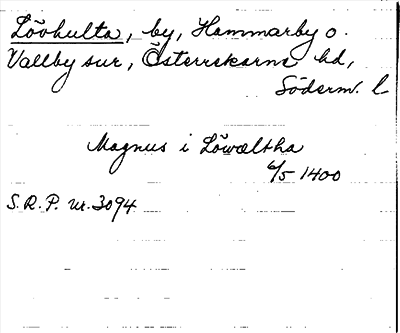 Lövhulta, by, Hammarby o.
Vallby sur, Österrekarne hd,
Söderm. l
Magnus i Löwæltha
6/5 1400
S.R.P. nr. 3094